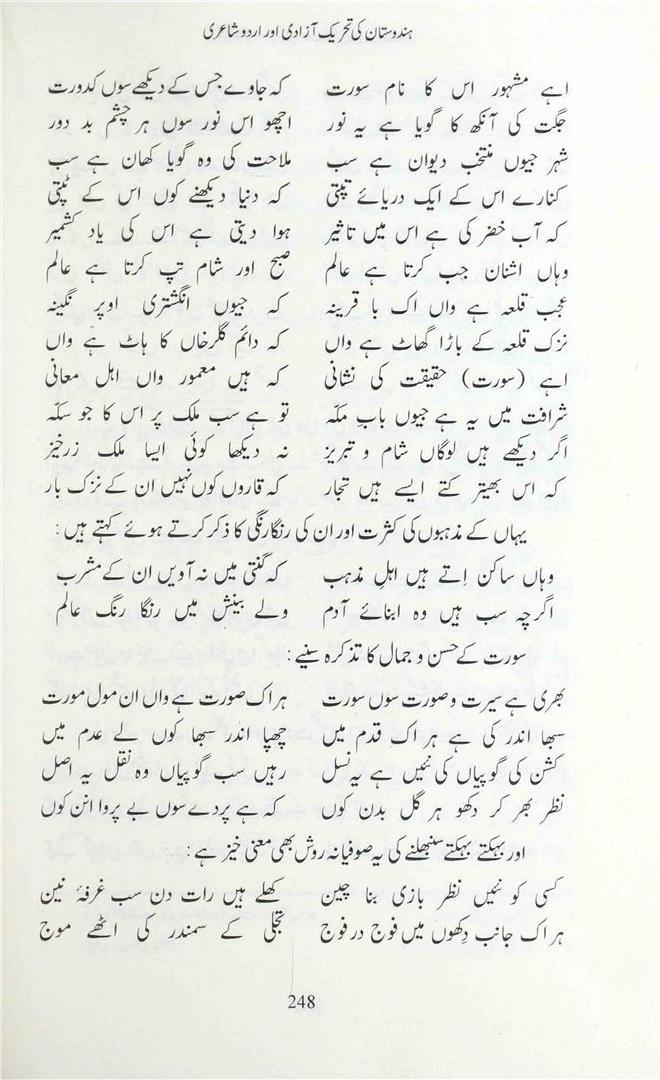 ہندوستان کی تحریک آزادی اور اردو شاعری
اہے مشہور اس کا نام سورت کہ جاوے جس کے دیکھے سوں کدورت
جگت کی آنکھ کا گویا ہے یہ نور اچھو اس نور سوں ہر چشم بد دور
شہر جیوں منتخب دیوان ہے سب ملاحت کی وہ گویا کھان ہے سب
کنارے اس کے ایک دریائے تپتی کہ دنیا دیکھنے کوں اس کے ٹپتی
کہ آب خضر کی ہے اس میں تاثیر ہوا دیتی ہے اس کی یاد کشمیر
وہاں اشنان جب کرتا ہے عالم صبح اور شام تپ کرتا ہے عالم
عجب قلعہ ہے واں اک با قرینہ کہ جیوں انگشتری اوپر نگینہ
نزک قلعہ کے باڑا گھاٹ ہے واں کہ دائم گلرخاں کا ہاٹ ہے واں
اہے (سورت) حقیقت کی نشانی کہ ہیں معمور واں اہل معانی
شرافت میں یہ ہے جیوں بابِ مکّہ تو ہے سب ملک پر اس کا جو سکّہ
اگر دیکھے ہیں لوگاں شام و تبریز نہ دیکھا کوئی ایسا ملک زرخیز
کہ اس بھیتر کتے ایسے ہیں تجار کہ قاروں کوں نہیں ان کے نزک بار
یہاں کے مذہبوں کی کثرت اور ان کی رنگارنگی کا ذکر کرتے ہوئے کہتے ہیں:
وہاں ساکن اِتے ہیں اہلِ مذہب کہ گنتی میں نہ آویں ان کے مشرب
اگرچہ سب ہیں وہ ابنائے آدم ولے بینش میں رنگا رنگ عالم
سورت کے حسن و جمال کا تذکرہ سنیے:
بھری ہے سیرت و صورت سوں سورت ہر اک صورت ہے واں ان مول مورت
سبھا اندر کی ہے ہر اک قدم میں چھپا اندر سبھا کوں لے عدم میں
کشن کی گوپیاں کی نئیں ہے یہ نسل رہیں سب گوپیاں وہ نقل یہ اصل
نظر بھر کر دکھو ہر گل بدن کوں کہ ہے پردے سوں بے پروا انن کوں
اور بہکتے بہکتے سنبھلنے کی یہ صوفیانہ روش بھی معنی خیز ہے:
کسی کو نئیں نظر بازی بنا چین کھلے ہیں رات دن سب غرفۂ نین
ہر اک جانب دِکھوں میں فوج در فوج تجلی کے سمندر کی اٹھے موج
248